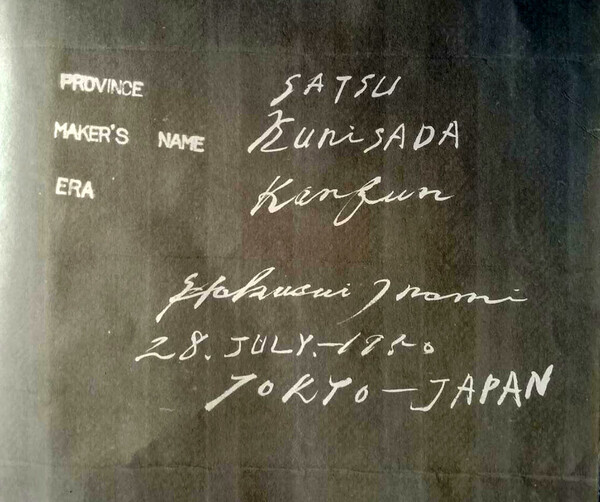 PROVINCE SATSU
MAKER'S NAME KuniSADA
ERA Kanbun
Hakusui Inami
28. JULY.-1950
TOKYO-JAPAN